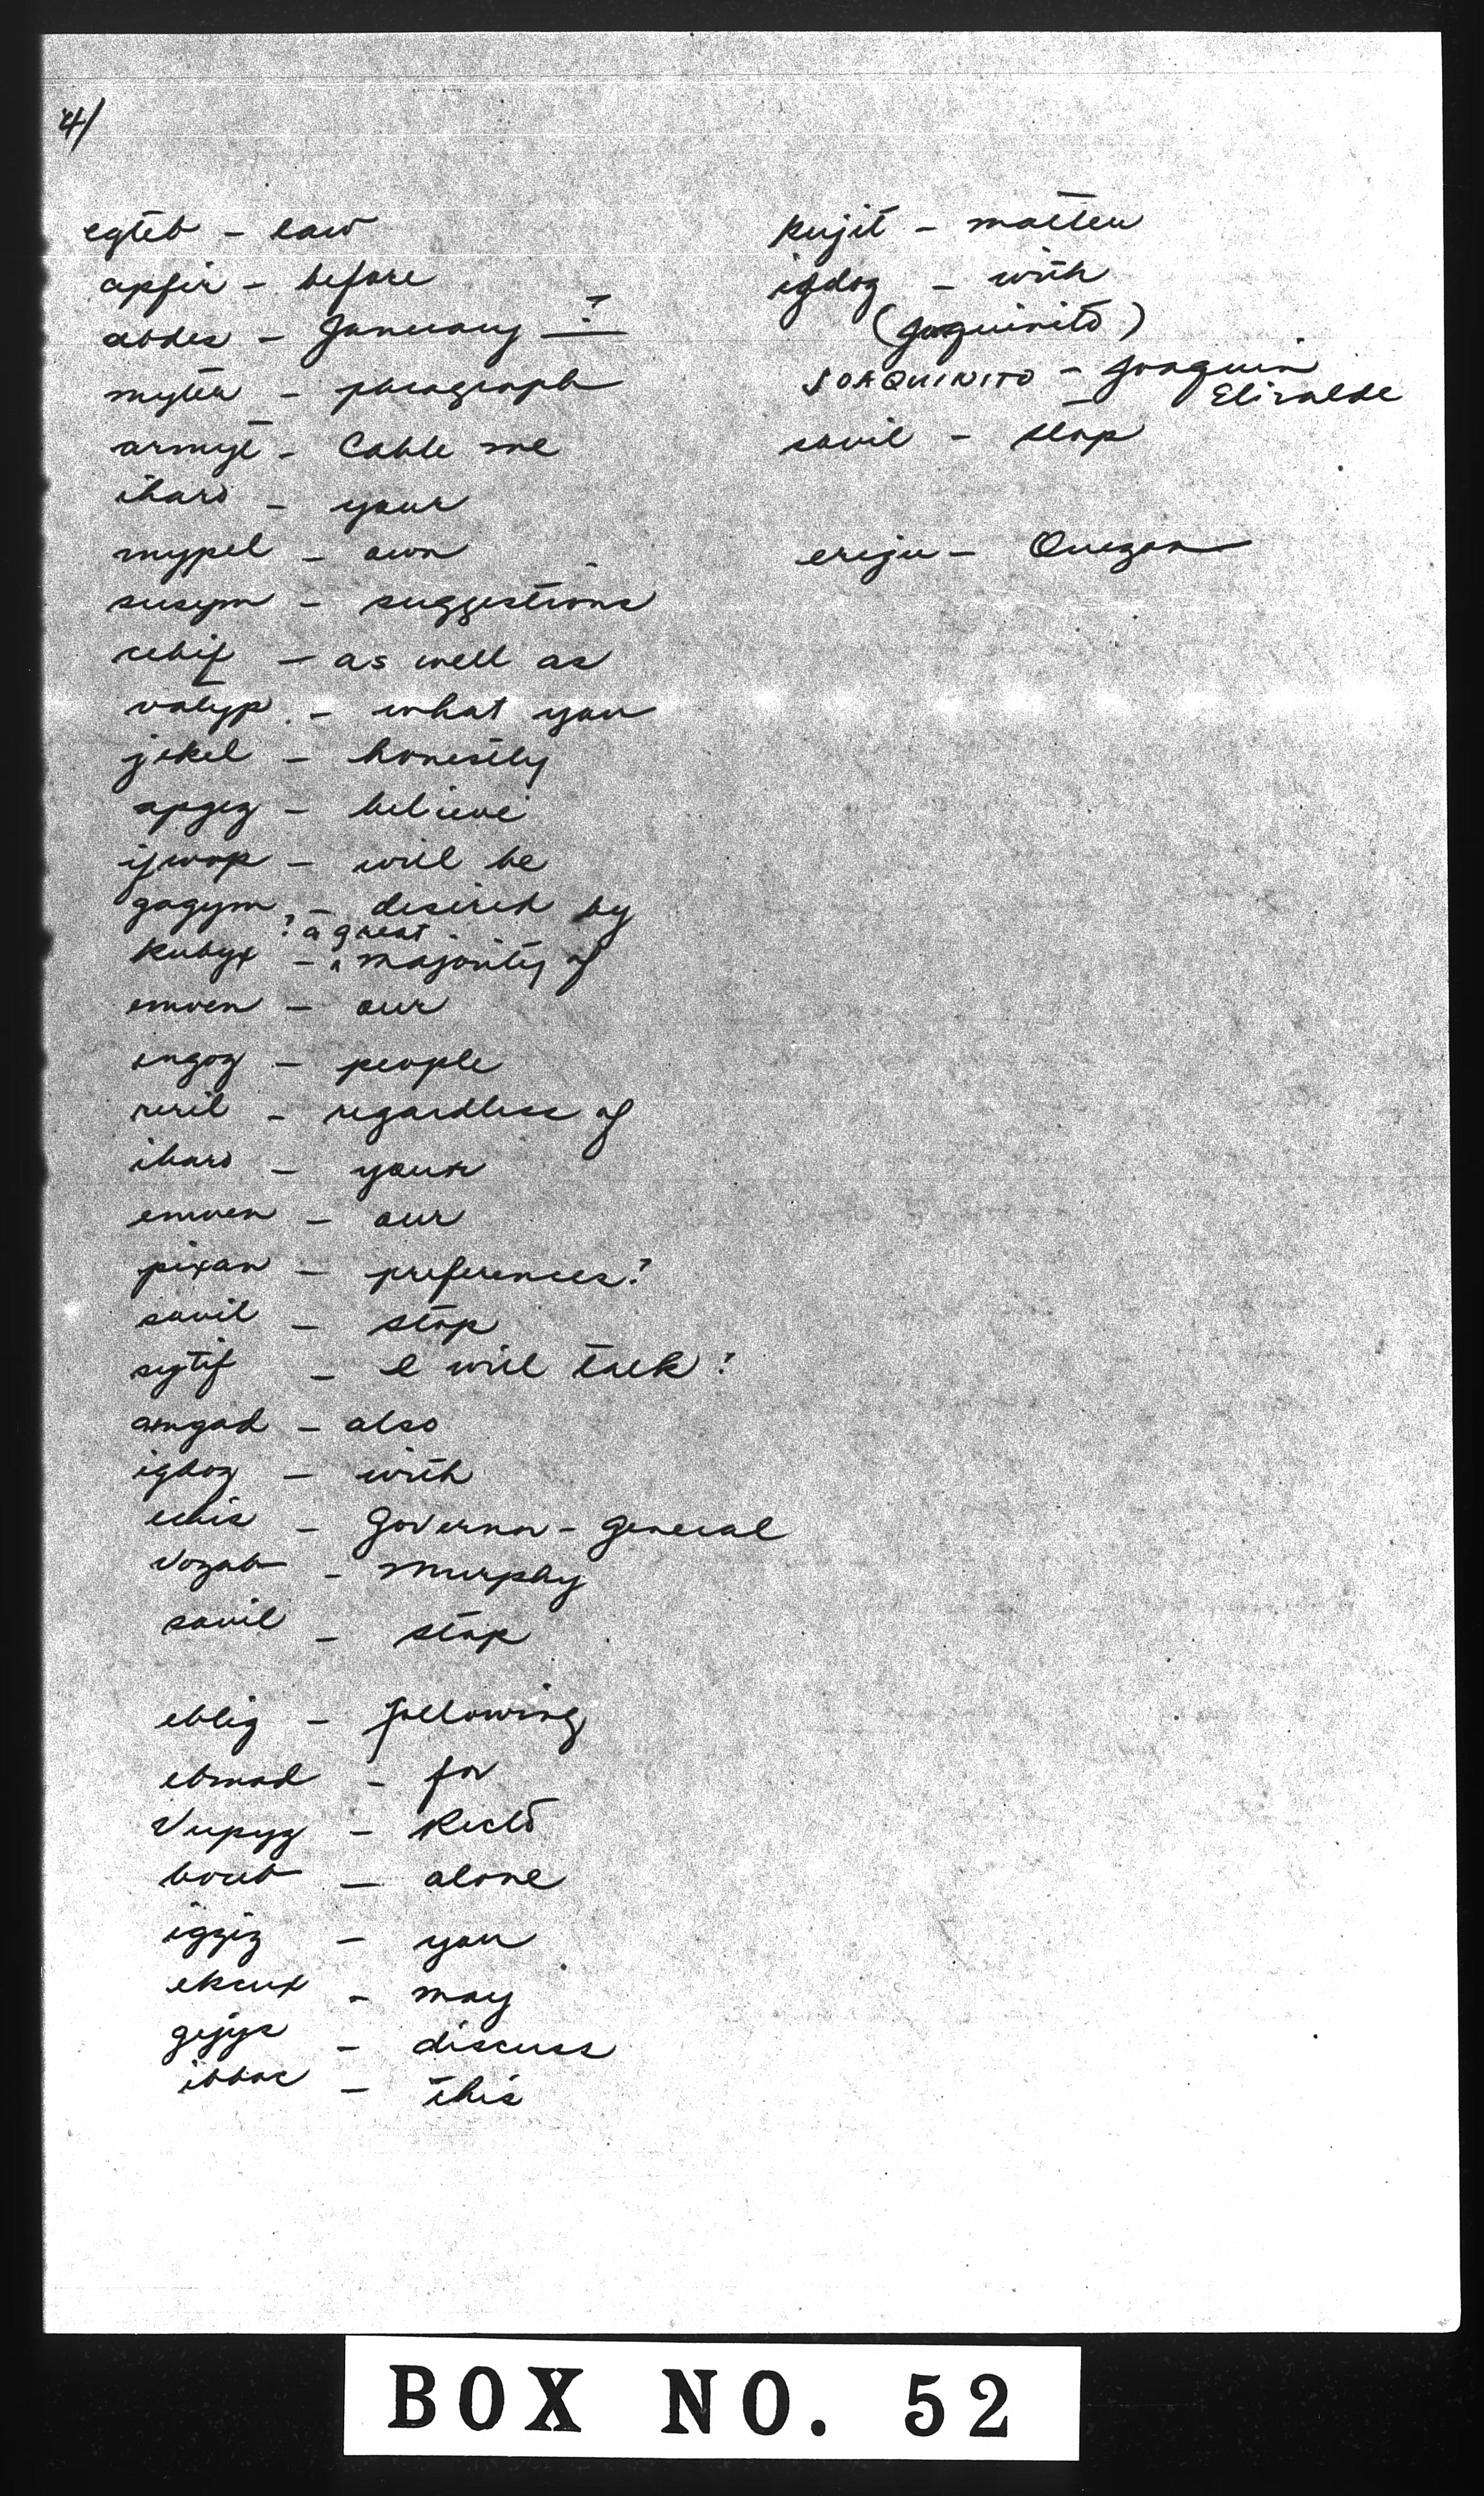 4/
egteb - law
apfir - before
abdes - January ?
myter - paragraph
armyt - Cable me
iharo - your
mypel - own
susym - suggestions
rebif - as well as
valyp - what you
jekel - honestly
apgeg - believe
ijwop - will be
gagym - desired by
kubyx - ? a great majority of
emven - our
engog - people
reril - regardless of
iharo - your
emven - our
pixan - preferences?
savil - stop
sytif - I will talk?
amgad - also
igdog - with
echis - Governor-General
Vozab - Murphy
savil - stop
eblig - following
ebmad - for
Vupyg - Recto
boub - alone
iggiz - you
ekcux - may
gejys - discuss
ibbac - this
kujit - matter
igdog - with
(Joaquinito)
JOAQUINITO - Joaquin
Elizalde
savil - stop
ereju - Quezon
BOX NO. 52